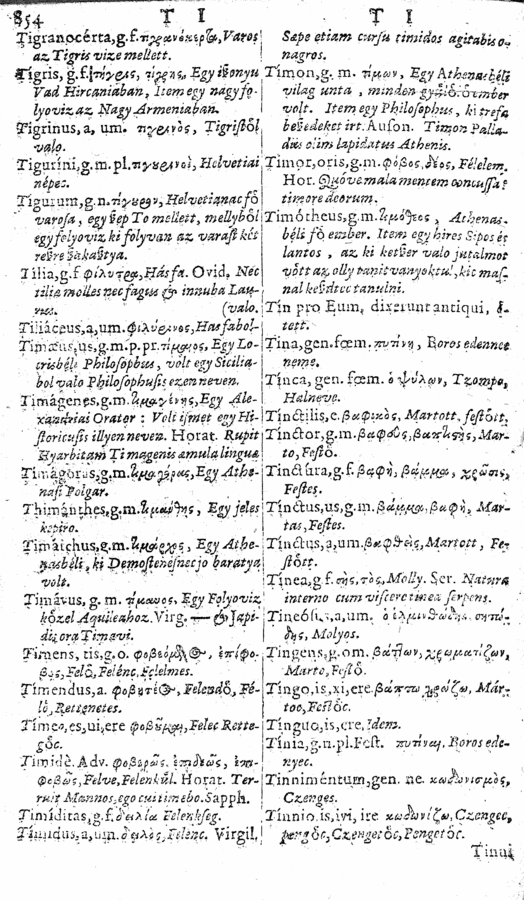 854 T I T I
Tigranocérta, g.f. τιγρανόκερτα, Varos
az Tigris vize mellett.
Tigris, g.f. τίγρις, Egy iszonyu
Vad Hircaniaban, Item egy nagy fo-
lyoviz az Nagy Armeniaban.
Tigrinus, a, um. τιγρινὸς, Tigrisbȍl
valo.
Tiguríni, g.m. pl. τιγυρινοὶ, Helvetiai
népec.
Tigurum, g.n. Helvetianac fȍ
varosa, egy szep To mellett, mellybȍl
egy folyoviz ki folyvan az varast két
reszre szakasztya.
Tilia, g.f. Hás fa. Ovid, Nec
tilia molles nec fagus & innuba Lau-
rus. (valo.
Tiliáceus, a, um. Has fabol
g.m. p. pr. τίμαιος, Egy Lo-
crisbéli Philosophus, volt egy Sicilia-
bol valo Philosophusis ezen neven.
Timágenes, g.m. τιμαγένης, Egy Ale-
xandriai Orator: Volt ismet egy Hi-
storicusis illyen neven. Horat. Rupit
Hyarbitam Timagenis emula lingua
Timágoras, g.m. τιμαγόρας, Egy Athe-
nasi Polgar.
Thimánthes, g.m. τιμάνθης, Egy jeles
kepiro.
Timárchus, g.m. τιμάρχος, Egy Athe-
nasbéli, ki Demostenesnec jo baratya
volt.
Timávus, g. m. τίμαυος, Egy Folyoviz
kȍzel Aquileahoz. Virg. — & Japi-
dis ora Timavi.
Timens, tis, g.o.
Felȍ, Felénc, Felelmes.
Timendus, a. Felendȍ, Fé-
lȍ, Rettenetes.
Tímeo, es, ui, ere φοβοῦμαι, Felec Rette-
gȍc.
Timidè. Adv. φοβερῶς.
Felve, Felenkül. Horat. Ter-
ruit Mannos, ego cui timebo. Sapph.
Timíditas, g.f. δειλία Felenkseg.
Tímidus, a, um. δειλὸς, Felenc. Virgil.
Sæpe etiam cursu timidos agitabis o-
nagros.
Timon, g. m. τίμων, Egy Athenasbéli
vilag unta, minden ember
volt. Item egy Philosophus, ki trefa
beszedeket irt. Auson. Timon Palla-
diis olim lapidatus Athenis.
Timor, oris, g.m. φόβος, δέος, Félelem.
Hor. Quóve mala mentem concussa?
timore deorum.
Timótheus, g.m. τιμόθεος, Athenas-
béli fȍ ember. Item egy hires Sipos és
lantos, az ki ketszer valo jutalmot
vȍtt az olly tanitvanyoktul, kic mas-
nal kesdtec tanulni.
Tin pro Eum, dixerunt antiqui, ȍ-
tett.
Tina, gen. fœm. πυτίνη, Boros edennec
neme.
Tinca, gen. fœm. Tzompo,
Halneve.
Tinctilis, e. βαφικὸς, Martott, festȍtt.
Tinctor, g.m. βαφεὺς, Mar-
to, Festȍ.
Tinctúra, g.f. βαφὴ, βάμμα, χρῶσις,
Festes.
Tinctus, us, g.m. βάμμα, βαφὴ, Mar-
tas, Festes.
Tinctus, a, um. βαφθεὶς, Martott, Fe-
stȍtt.
Tínea, g.f. σὴς, Molly. Ser. Natura
interno cum viscere tinea serpens.
a, um.
Molyos.
Tingens, g. om. βάπτων, χρωματίζων,
Marto, Festȍ.
Tingo, is, xi, ere βάπτω χρώζω, Már-
toc, Festȍc.
Tínguo, is, ere, idem.
Tínia, g.n. pl. Fest. Boros ede-
nyec.
Tinniméntum, gen. ne. κωδωνισμὸς,
Czenges.
Tinnio, is, ivi, ire κωδωνίζω, Czengec,
pengȍc, Czengetȍc, Pengetȍc.